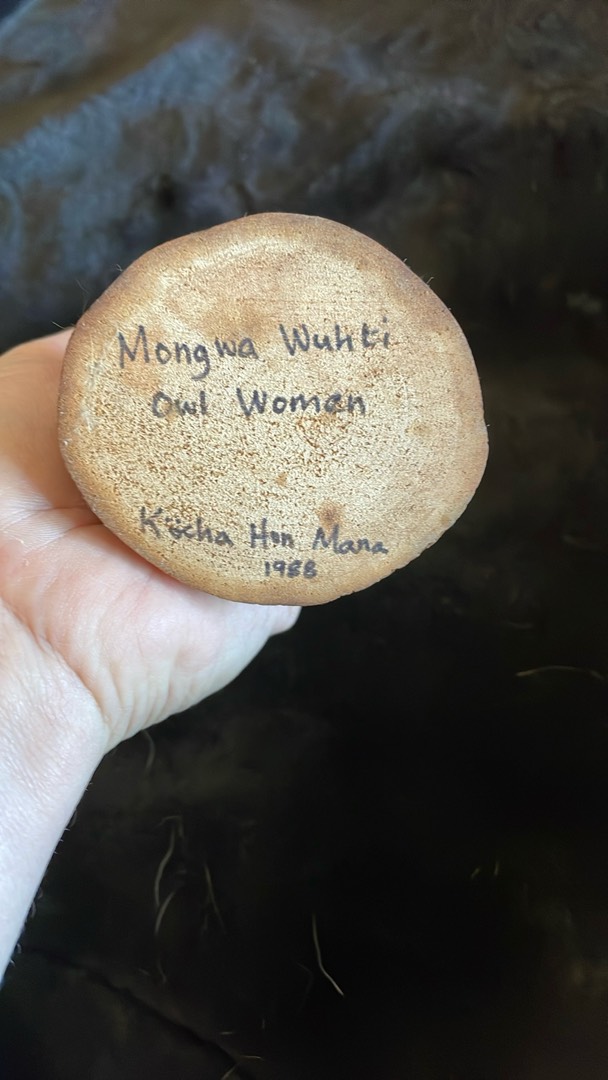 Mongwa Wuhti
Owl Women
Kocha Hon Mana
1988